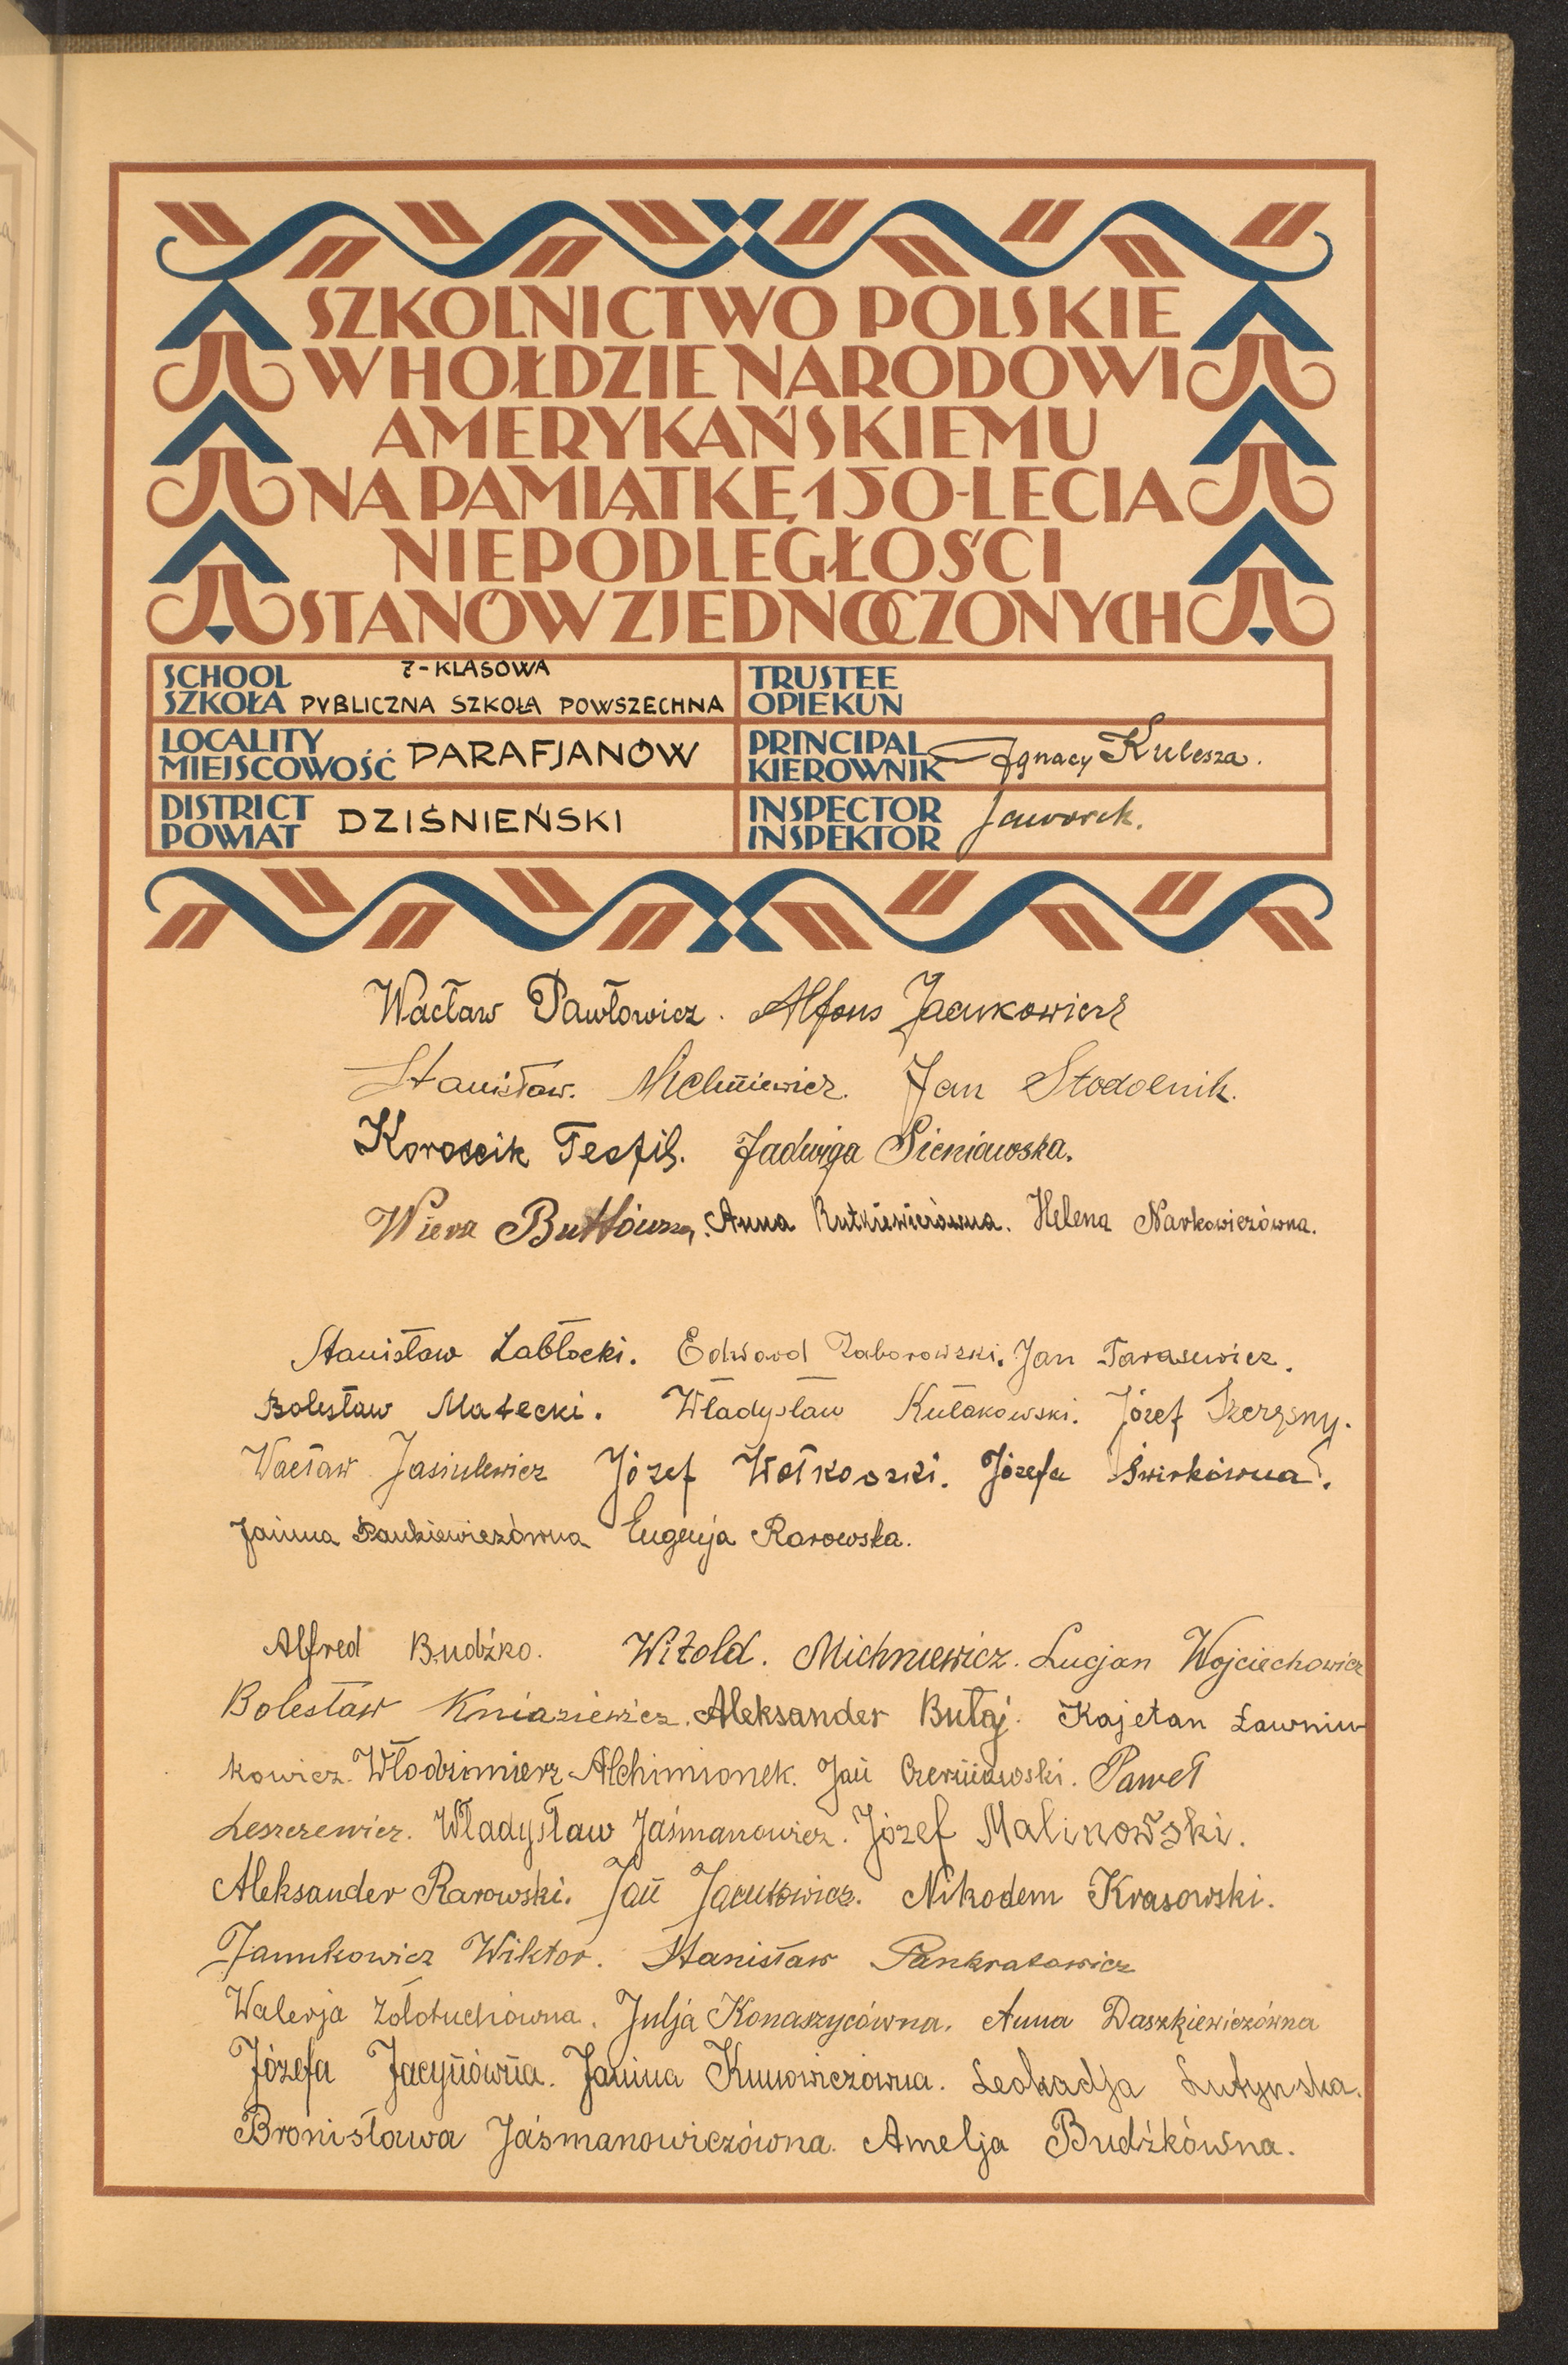 SZKOLNICTWO POLSKIE
W HOŁDZIE NARODOWI
AMERYKAŃSKIEMU
NA PAMIĄTKĘ 150-LECIA
NIEPODLEGŁOŚCI
STANÓW ZJEDNOCZONYCH
SCHOOL
SZKOŁA
7-KLASOWA
PVBLICZNA SZKOŁA POWSZECHNA
TRUSTEE
OPIEKUN
LOCALITY
MIEJSCOWOŚĆ
PARAFJANÓW
PRINCIPAL
KIEROWNIK
Ignacy Kulesza.
DISTRICT
POWIAT
DZIŚNIEŃSKI
INSPECTOR
INSPEKTOR
Jaworek.
Wacław Pawłowicz. Alfons Jacukowicz
Stanisław. Jan Stodolnik.
Korościk Teofil. Jadwiga Sieniawska.
Wiera Anna Rutkiewiczówna. Helena Narkowiczówna.
Stanisław Żabłocki. Edward Zaborowski. Jan Tarasewicz.
Bolesław Małecki. Władysław Kułakowski. Józef
Wacław Jasiulewicz Józef Wołkowski. Józefa Świrkówna.
Janina Pankiewiczówna Eugenja Rarowska.
Alfred Budźko. Witold. Michniewicz. Lucjan Wojciechowicz
Bolesław Kniaziewicz. Aleksander Bułaj. Kajetan Ławniu-
kowicz. Włodzimierz Alchimionek. Jan Czerniawski. Paweł
Leszczewicz. Władysław Jaśmanowicz. Józef Malinowski.
Aleksander Rarowski. Jan Jacukowicz. Nikodem Krasowski.
Janukowicz Wiktor. Stanisław Pankratowicz
Walerja Żołotuchówna. Julja Konaszycówna. Anna Daszkiewiczówna
Józefa Jacynówna. Janina Kunowiczówna. Leokadja Lutynska.
Bronisława Jaśmanowiczówna. Amelja Budźkówna.